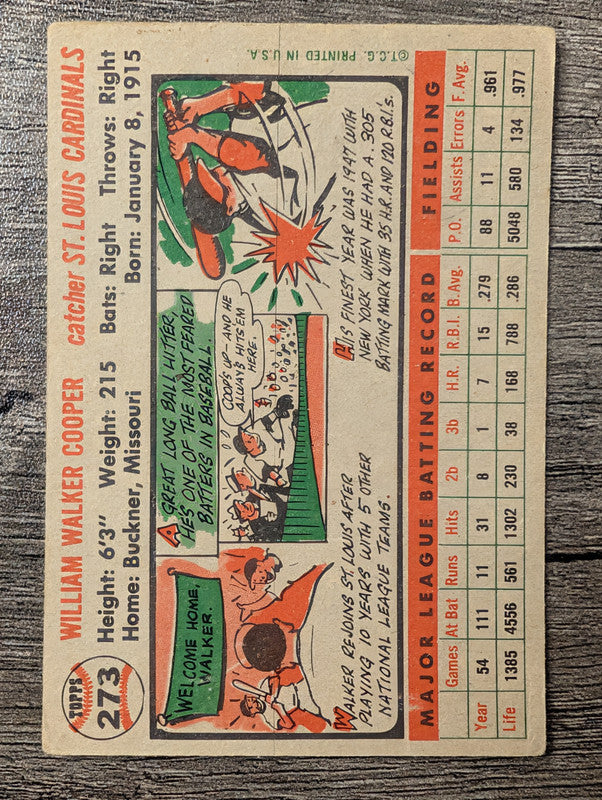 TOPPS
273
WILLIAM WALKER COOPER catcher ST. LOUIS CARDINALS
Height: 6'3" Weight: 215 Bats: Right Throws: Right
Home: Buckner, Missouri Born: January 8, 1915
WELCOME HOME,
WALKER.
WALKER REJOINS ST. LOUIS AFTER
PLAYING 10 YEARS WITH 5 OTHER
NATIONAL LEAGUE TEAMS.
A GREAT LONG BALL HITTER,
HE'S ONE OF THE MOST FEARED
BATTERS IN BASEBALL.
COOP'S UP-AND HE
ALWAYS HITS 'EM
HERE.
HIS FINEST YEAR WAS 1947 WITH
NEW YORK WHEN HE HAD A .305
BATTING MARK WITH 35 H.R. AND 120 R.B.I.'s.
MAJOR LEAGUE BATTING RECORD FIELDING
Games At Bat Runs Hits 2b 3b H.R. R.B.I. B.Avg. P.O. Assists Errors F.Avg.
Year 54 111 11 31 8 1 7 15 .279 88 11 4 .961
Life 1385 4556 561 1302 230 38 168 788 .286 5048 580 134 .977
© T.C.G. PRINTED IN U.S.A.